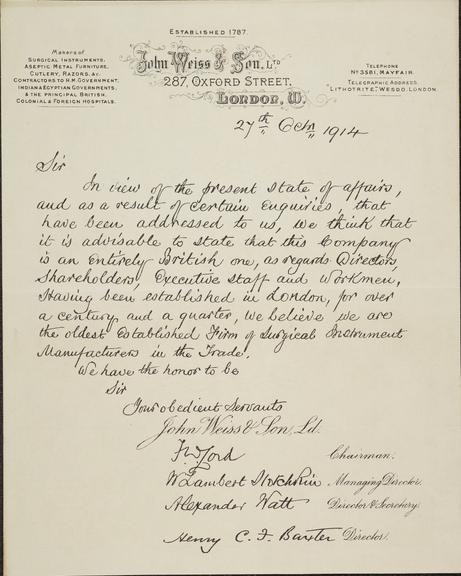 ESTABLISHED 1787.
Makers of
SURGICAL INSTRUMENTS,
ASEPTIC METAL FURNITURE,
CUTLERY, RAZORS, &c.
CONTRACTORS TO H.M. GOVERNMENT,
INDIA & EGYPTIAN GOVERNMENTS,
& THE PRINCIPAL BRITISH,
COLONIAL & FOREIGN HOSPITALS.
John Weiss & Son, LTD
287, OXFORD STREET.
LONDON, W.
TELEPHONE
No 3581, MAYFAIR.
TELEGRAPHIC ADDRESS.
"LITHOTRITE", WESDO, LONDON.
27th Octr 1914
Sir
In view of the present state of affairs,
and as a result of certain Enquiries, that
have been addressed to us, we think that
it is advisable to state that this Company
is an Entirely British one, as regards Directors,
Shareholders, Executive Staff and Workmen,
Having been established in London, for over
a century and a quarter, we believe we are
the oldest Established Firm of Surgical Instrument
Manufacturers in the Trade.
We have the honor to be
Sir
Your obedient Servants
John Weiss & Son, Ld.
Chairman.
W Lambert Managing Director.
Alexander Watt Director & Secretary.
Henry C. F. Baxter Director.